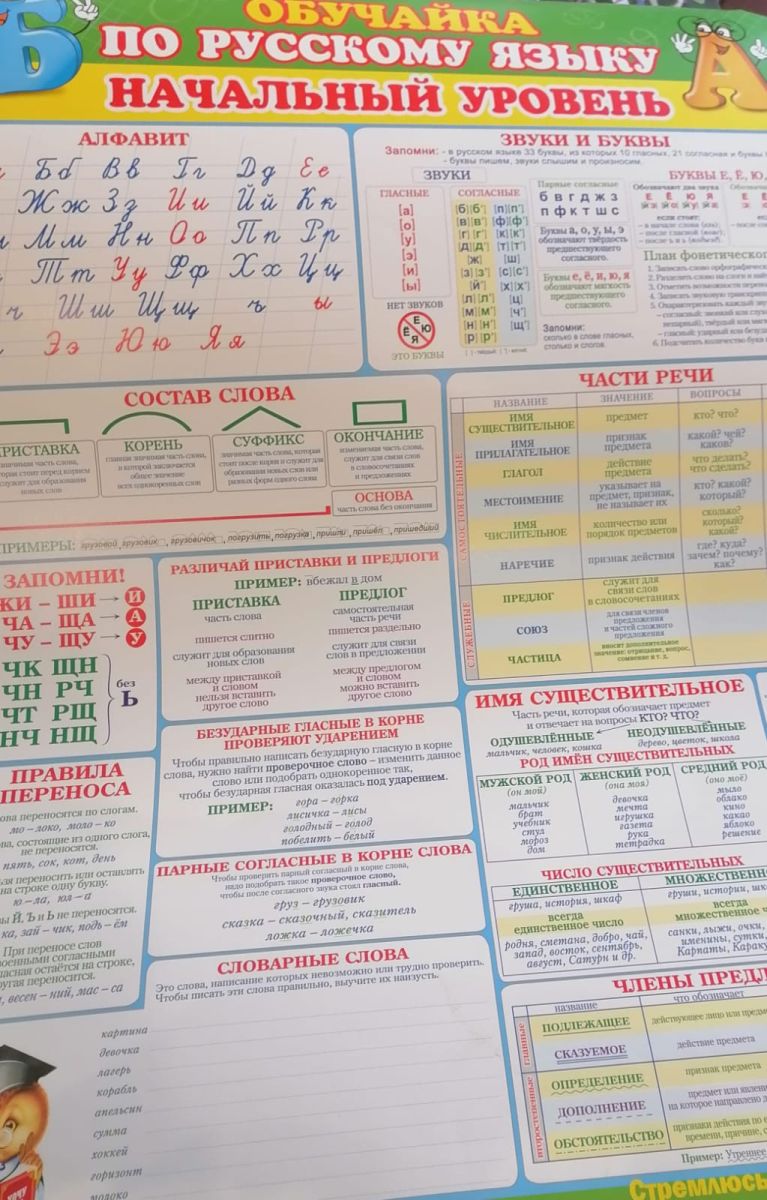 ОБУЧАЙКА
ПО РУССКОМУ ЯЗЫКУ
НАЧАЛЬНЫЙ УРОВЕНЬ
АЛФАВИТ
Б б В в Г г Д д Е е
Ж ж З з И и Й й К к
М м Н н О о П п Р р
Т т У у Ф ф Х х Ц ц
ч Ш ш Щ щ ъ ы
Э э Ю ю Я я
ЗВУКИ И БУКВЫ
Запомни: - в русском языке 33 буквы, из которых 10 гласных, 21 согласная и буквы
- буквы пишем, звуки слышим и произносим.
ЗВУКИ
ГЛАСНЫЕ
[а]
[о]
[у]
[э]
[и]
[ы]
НЕТ ЗВУКОВ
Е Ё Ю Я
ЭТО БУКВЫ
СОГЛАСНЫЕ
[б][б'] [п][п']
[в][в'] [ф][ф']
[г][г'] [к][к']
[д][д'] [т][т']
[ж] [ш]
[з][з'] [с][с']
[й'] [х][х']
[л][л'] [ц]
[м][м'] [ч']
[н][н'] [щ']
[р][р']
Парные согласные
б в г д ж з
п ф к т ш с
Буквы а, о, у, ы, э
обозначают твёрдость
предшествующего
согласного.
Буквы е, ё, и, ю, я
обозначают мягкость
предшествующего
согласного.
Запомни:
сколько в слове гласных,
столько и слогов.
БУКВЫ Е, Ё, Ю,
Обозначают два звука
Е Ё Ю Я
если стоят:
- в начале слова
- после гласной
- после ъ и ь
План фонетического
1. Записать слово орфографически
2. Разделить слово на слоги и
3. Отметить возможности
4. Записать звуковую
5. Охарактеризовать каждый
- согласный: звонкий или
непарный), твёрдый или
- гласный: ударный или
6. Подсчитать количество букв
СОСТАВ СЛОВА
ПРИСТАВКА
значимая часть слова,
которая стоит перед корнем
служит для образования
новых слов
КОРЕНЬ
главная значимая часть слова,
в которой заключается
общее значение
всех однокоренных слов
СУФФИКС
значимая часть слова, которая
стоит после корня и служит для
образования новых слов или
разных форм одного слова
ОКОНЧАНИЕ
изменяемая часть слова,
служит для связи слов
в словосочетаниях
и предложениях
ОСНОВА
часть слова без окончания
ПРИМЕРЫ: грузовой, грузовик, грузовичок, погрузить, погрузка, пришли, пришёл, пришедший
ЧАСТИ РЕЧИ
НАЗВАНИЕ ЗНАЧЕНИЕ ВОПРОСЫ
САМОСТОЯТЕЛЬНЫЕ
ИМЯ СУЩЕСТВИТЕЛЬНОЕ предмет кто? что?
ИМЯ ПРИЛАГАТЕЛЬНОЕ признак предмета какой? чей? каков?
ГЛАГОЛ действие предмета что делать? что сделать?
МЕСТОИМЕНИЕ указывает на предмет, признак, не называет их кто? какой? который?
ИМЯ ЧИСЛИТЕЛЬНОЕ количество или порядок предметов сколько? который? какой?
НАРЕЧИЕ признак действия где? куда? зачем? почему? как?
СЛУЖЕБНЫЕ
ПРЕДЛОГ служит для связи слов в словосочетаниях
СОЮЗ для связи членов предложения и частей сложного предложения
ЧАСТИЦА вносит дополнительное значение: отрицание, вопрос, сомнение и т. д.
ЗАПОМНИ!
ЖИ – ШИ → И
ЧА – ЩА → А
ЧУ – ЩУ → У
ЧК ЩН
ЧН РЧ
ЧТ РЩ
НЧ НЩ
без
Ь
РАЗЛИЧАЙ ПРИСТАВКИ И ПРЕДЛОГИ
ПРИМЕР: вбежал в дом
ПРИСТАВКА
часть слова
пишется слитно
служит для образования
новых слов
между приставкой
и словом
нельзя вставить
другое слово
ПРЕДЛОГ
самостоятельная
часть речи
пишется раздельно
служит для связи
слов в предложении
между предлогом
и словом
можно вставить
другое слово
БЕЗУДАРНЫЕ ГЛАСНЫЕ В КОРНЕ
ПРОВЕРЯЮТ УДАРЕНИЕМ
Чтобы правильно написать безударную гласную в корне
слова, нужно найти проверочное слово – изменить данное
слово или подобрать однокоренное так,
чтобы безударная гласная оказалась под ударением.
ПРИМЕР:
гора – горка
лисичка – лисы
голодный – голод
побелить – белый
ПАРНЫЕ СОГЛАСНЫЕ В КОРНЕ СЛОВА
Чтобы проверить парный согласный в корне слова,
надо подобрать такое проверочное слово,
чтобы после согласного звука стоял гласный.
груз – грузовик
сказка – сказочный, сказитель
ложка – ложечка
ПРАВИЛА
ПЕРЕНОСА
переносятся по слогам.
мо – локо, моло – ко
состоящие из одного слога,
не переносятся.
пять, сок, кот, день
переносить или оставлять
на строке одну букву.
ю – ла, юл – а
Й, Ъ и Ь не переносятся.
зай – чик, подъ – ём
При переносе слов
остаётся на строке,
другая переносится.
весен – ний, мас – са
СЛОВАРНЫЕ СЛОВА
Это слова, написание которых невозможно или трудно проверить.
Чтобы писать эти слова правильно, выучите их наизусть.
картина
девочка
лагерь
корабль
апельсин
сумма
хоккей
горизонт
молоко
ИМЯ СУЩЕСТВИТЕЛЬНОЕ
Часть речи, которая обозначает предмет
и отвечает на вопросы КТО? ЧТО?
ОДУШЕВЛЁННЫЕ НЕОДУШЕВЛЁННЫЕ
мальчик, человек, кошка дерево, цветок, школа
РОД ИМЁН СУЩЕСТВИТЕЛЬНЫХ
МУЖСКОЙ РОД
(он мой)
мальчик
брат
учебник
стул
мороз
дом
ЖЕНСКИЙ РОД
(она моя)
девочка
мечта
игрушка
газета
рука
тетрадка
СРЕДНИЙ РОД
(оно моё)
мыло
облако
кино
какао
яблоко
решение
ЧИСЛО СУЩЕСТВИТЕЛЬНЫХ
ЕДИНСТВЕННОЕ
груша, история, шкаф
всегда
единственное число
родня, сметана, добро, чай,
запад, восток, сентябрь,
август, Сатурн и др.
МНОЖЕСТВЕННО
груши, истории,
всегда
множественное
санки, лыжи, очки,
именины, сутки,
Карпаты,
ЧЛЕНЫ ПРЕДЛ
название что обозначает
главные
ПОДЛЕЖАЩЕЕ действующее лицо или
СКАЗУЕМОЕ действие предмета
второстепенные
ОПРЕДЕЛЕНИЕ признак предмета
ДОПОЛНЕНИЕ предмет или на которое направлено
ОБСТОЯТЕЛЬСТВО признаки действия по времени, причине,
Пример: Утреннее
Стремлюсь